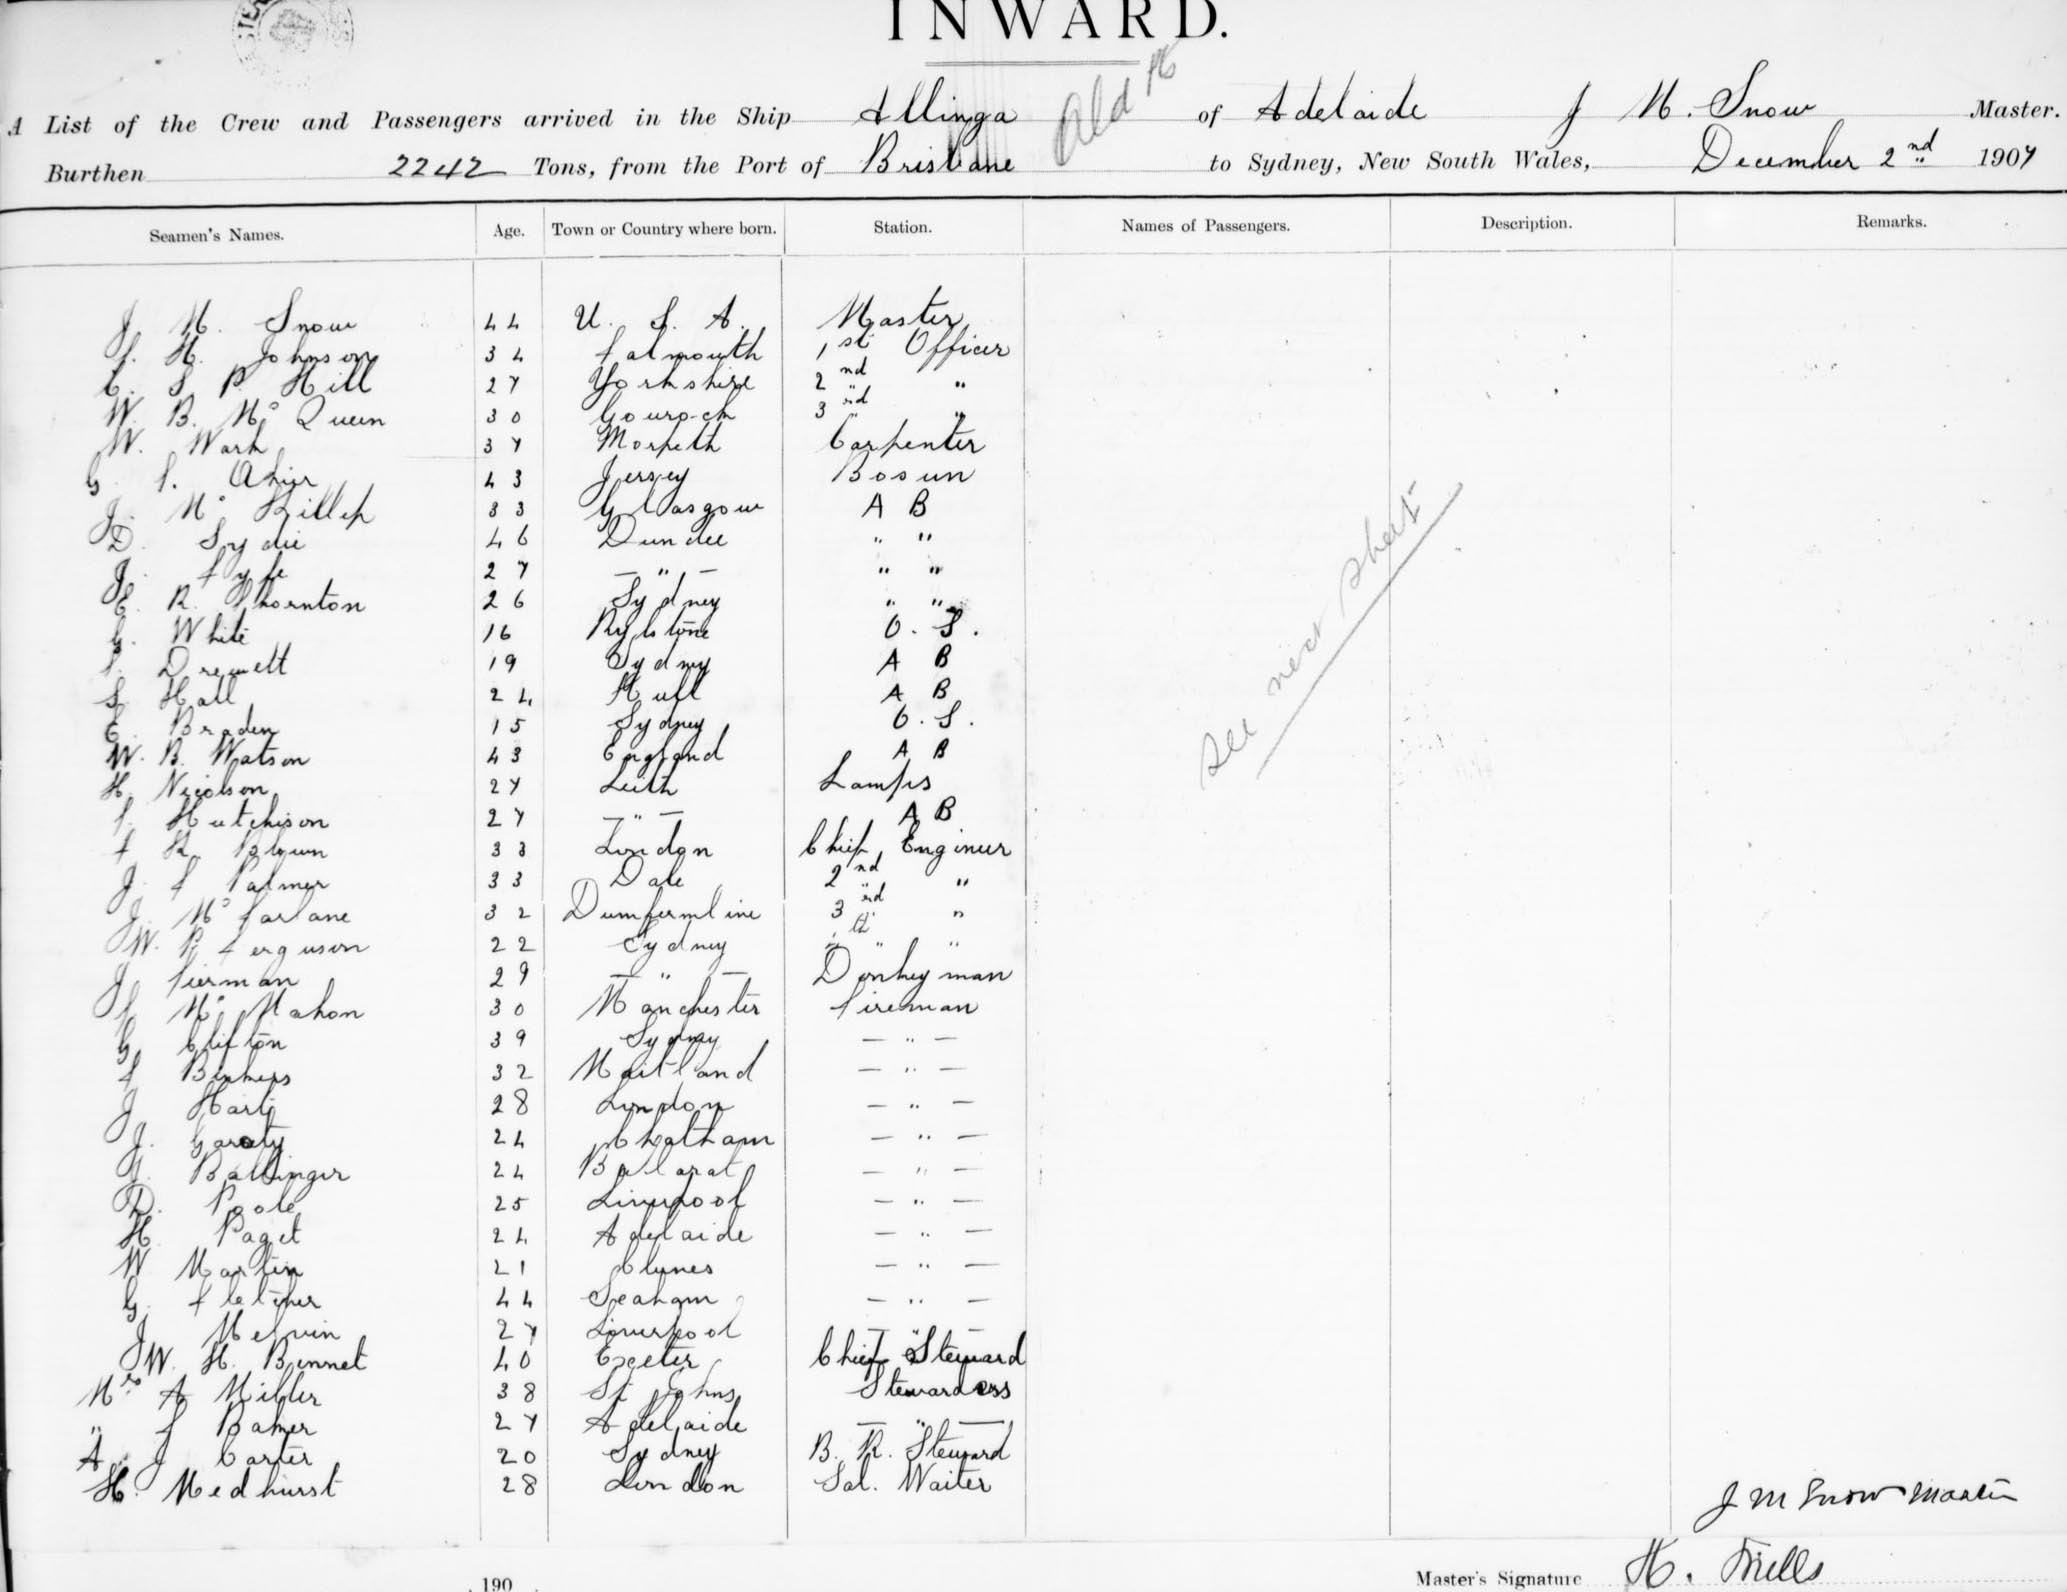 INWARD.
A List of the Crew and Passengers arrived in the Ship Allinga of Adelaide J M. Snow Master.
Burthen 2242 Tons, from the Port of Brisbane to Sydney, New South Wales, December 2nd 1907
Seamen's Names. Age. Town or Country where born. Station. Names of Passengers. Description. Remarks.
J M. Snow 44 U. S. A. Master
F. H. Johnson 34 Falmouth 1st Officer
C. S. P. Hill 27 Yorkshire 2nd "
W. B. Mc Queen 30 Gourock 3rd "
W. Wark 37 Morpeth Carpenter
G. F. Ahier 43 Jersey Bosun
J. Mc Killop 33 Glasgow A B
D. Sydie 46 Dundee " "
J. Fyfe 27 — " — " "
E. R. Thornton 26 Sydney " "
G. White 16 Rylstone O. S.
F. Drewett 19 Sydney A B
S. Hall 24 Hull A B
E. Braden 15 Sydney O. S.
W. B. Watson 43 England A B
H. Nicolson 27 Leith Lamps
F. Hutchison 27 — " — A B
F H. Brown 33 London Chief Engineer
J. F Palmer 33 Dale 2nd "
J. Mc Farlane 32 Dumfermline 3rd "
W. P. Ferguson 22 Sydney " "
J Fierman 29 — " — Donkeyman
J Mc Mahon 30 Manchester Fireman
G Clifton 39 Sydney — " —
F 32 Maitland — " —
J Hart 28 London — " —
J. Garaty 24 Chatham — " —
J. Ballinger 24 Balarat — " —
D. Poole 25 Liverpool — " —
H. Paget 24 Adelaide — " —
W Martin 21 Clunes — " —
G. Fletcher 44 Seaham — " —
J Melvin 27 Liverpool — " —
W. H. Bennet 40 Exeter Chief Steward
Mrs A Miller 38 St Johns Stewardess
" F Baker 27 Adelaide — " —
A. J Carter 20 Sydney B. R. Steward
H. Medhurst 28 London Sal. Waiter
See next sheet
J M Snow Master
Master's Signature H. Mills
190